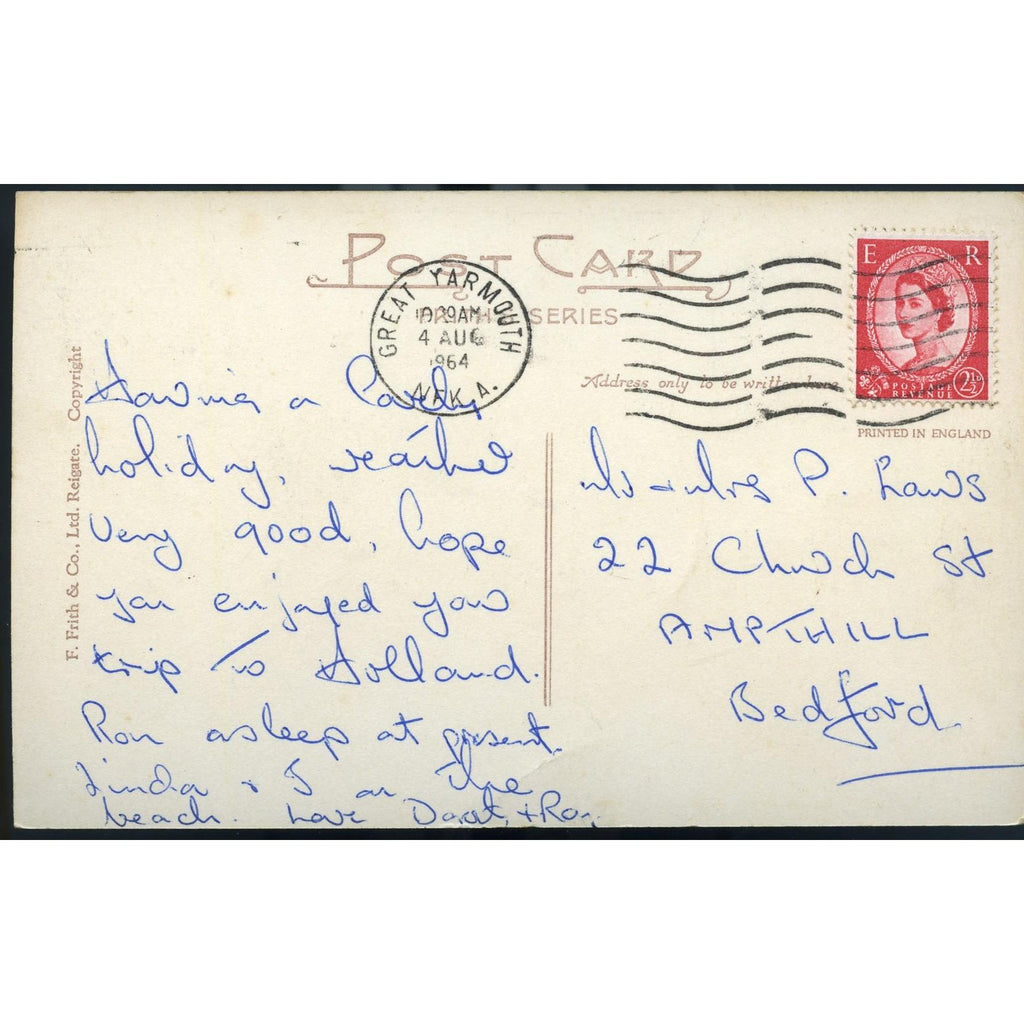 POST CARD
FRITH SERIES
GREAT YARMOUTH
AM
4 AUG
1964
NFK A.
E R
POSTAGE
REVENUE
2½D
Address only to be written here
PRINTED IN ENGLAND
F. Frith & Co., Ltd. Reigate. Copyright
Having a lovely
holiday, weather
very good, hope
you enjoyed your
trip to Holland.
Ron asleep at present.
Linda & I on the
beach. Love + Ron
Mr & Mrs P. Laws
22 Church St
AMPTHILL
Bedford